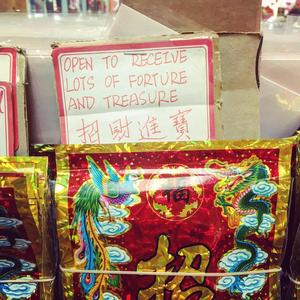 OPEN TO RECEIVE
LOTS OF FORTURE
AND TREASURE
招財進寶
福
招